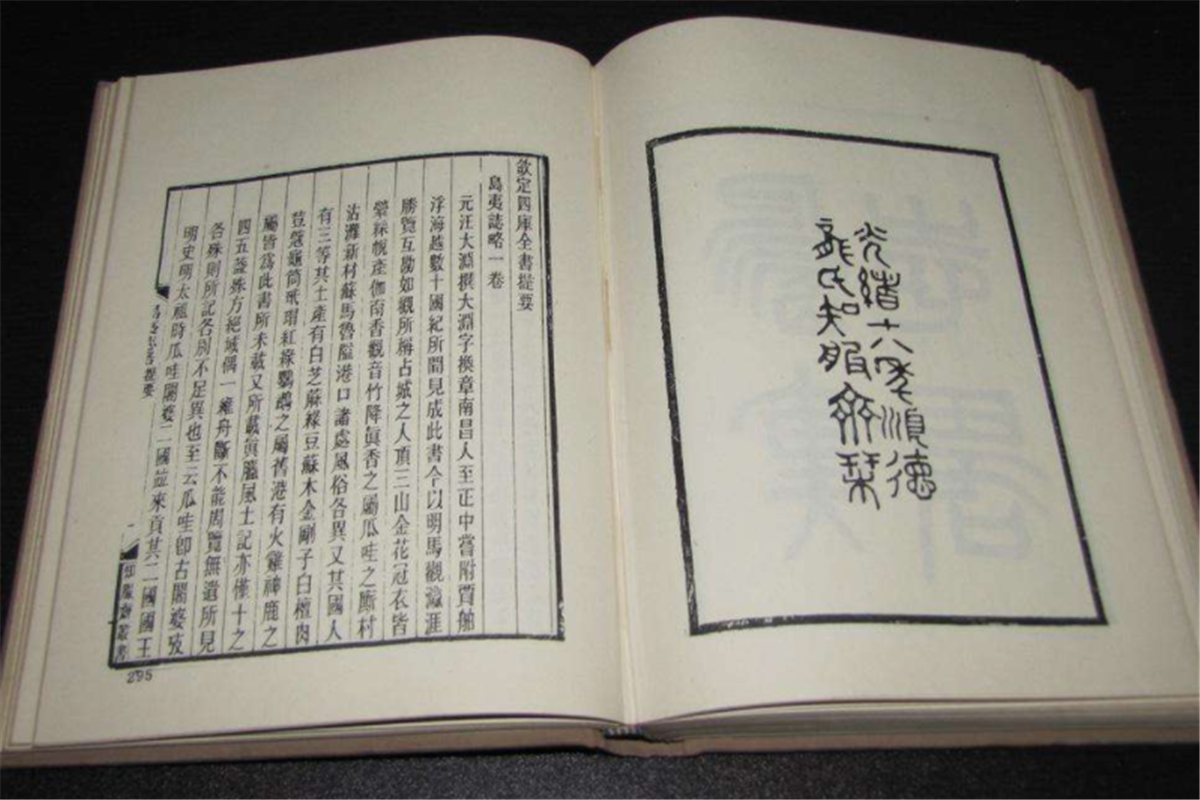 光緒十八年順德
龍氏知服齋栞
欽定四庫全書提要
島夷誌略一卷
元汪大淵撰大淵字換章南昌人至正中嘗附賈舶
浮海越數十國紀所聞見成此書今以明馬觀瀛涯
勝覽互勘如觀所稱占城之人頂三山金花冠衣皆
縈綵帨產伽南香觀音竹降眞香之屬瓜哇之廝村
沽灘新村蘇馬魯隘港口諸處風俗各異又其國人
有三等其土產有白芝蔴綠豆蘇木金剛子白檀肉
荳蔻龜筒玳瑁紅綠鸚鵡之屬舊港有火雞神鹿之
屬皆爲此書所未載又所載眞臘風土記亦僅十之
四五葢殊方絕域偶一維舟斷不能周覽無遺所見
各殊則所記各別不足異也至云瓜哇卽古闍婆攷
明史明太祖時瓜哇闍婆二國竝來貢其二國國王
島夷志畧提要
一
知服齋叢書
295